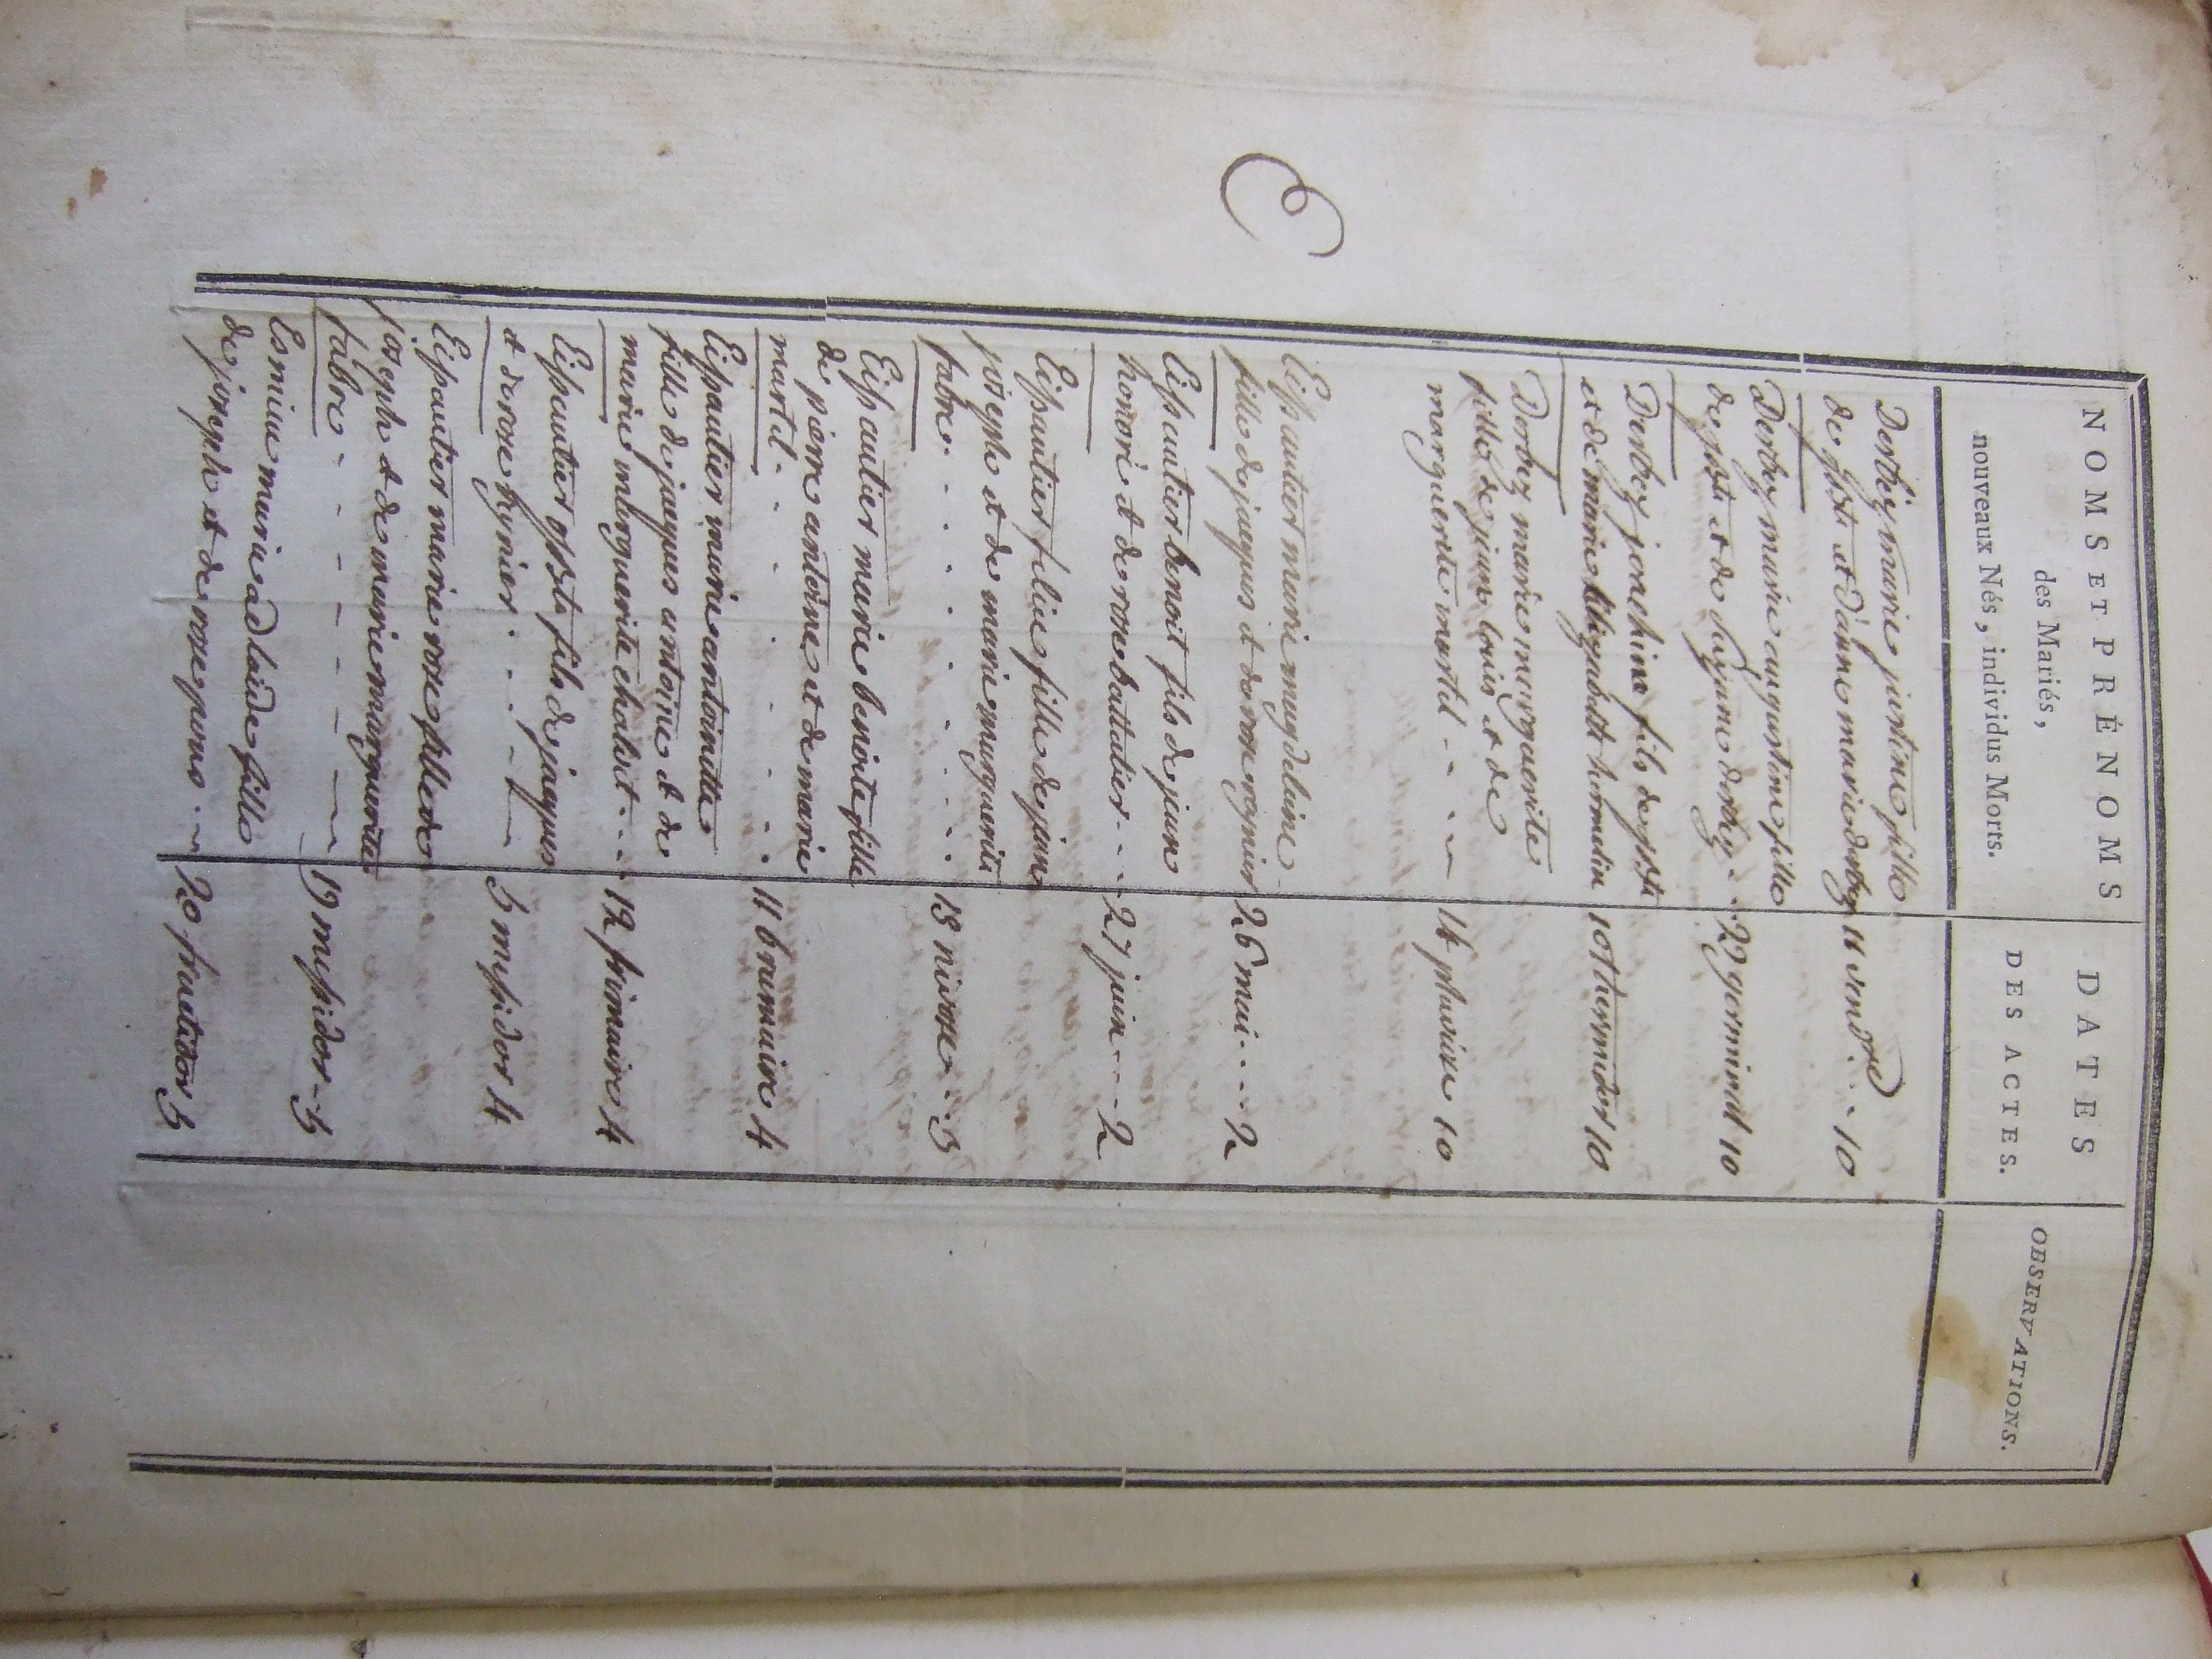 NOMS ET PRÉNOMS
des Mariés,
nouveaux Nés, individus Morts.
DATES
DES ACTES.
OBSERVATIONS.
Dorbey marie justine fille
de et d'anne marie dorbey 11 vendre .. 10
Dorbey marie augustine fille
de et de dorbey .. 22 germinal 10
Dorbey joachine fils de
et de marie 10 thermidor 10
Dorbey marie marguerite
fille de jean louis et de
marguerite martel - . ~ 14 pluviose 10
E
Eissautier marie magdelaine
fille de jacques et de rose reynier 26 mai . . . 2
Eissautier benoit fils de jean
honoré et de rose battalier . . 27 juin - - - 2
Eissautier felicie fille de jean
joseph et de marie marguerite
fabre . . . . . . . 18 nivose . . 3
Eissautier marie benoite fille
de pierre antoine et de marie
martel . . . . . . 11 brumaire 4
Eissautier marie antoinette
fille de jacques antoine et de
marie marguerite chabert . . . 12 frimaire 4
Eissautier fils de jacques
et de rose reynier . . . 5 messidor 4
Eissautier marie rose fille de
joseph et de marie marguerite
fabre - - - - - - 19 messidor - 5
Esmieu marie adlaïde fille
de joseph et de rose . ~ 20 fructidor 5